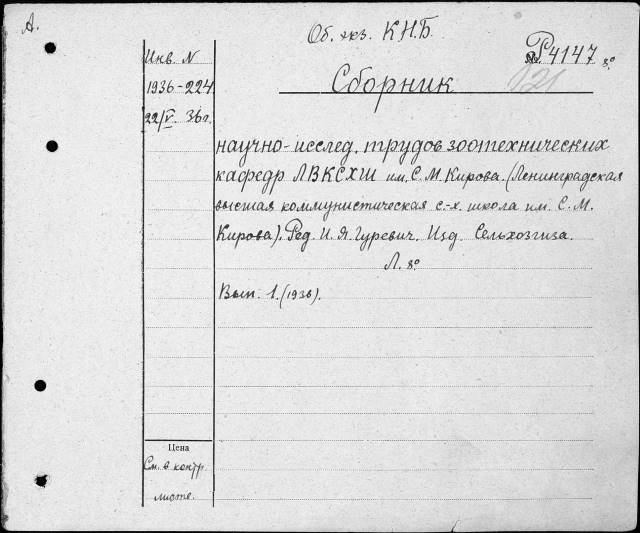 А.
Об. экз. КНБ.
№ Р4147 8º
121
Сборник
Инв. N
1936-224
22/V. 36г.
научно-исслед. трудов зоотехнических
кафедр ЛВКСХШ им. С. М. Кирова. (Ленинградская
высшая коммунистическая с.-х. школа им. С. М.
Кирова). Ред. И. Я. Гуревич. Изд. Сельхозгиза.
Л. 8º
Вып. 1. (1936).
Цена
См. в контр.
листе.